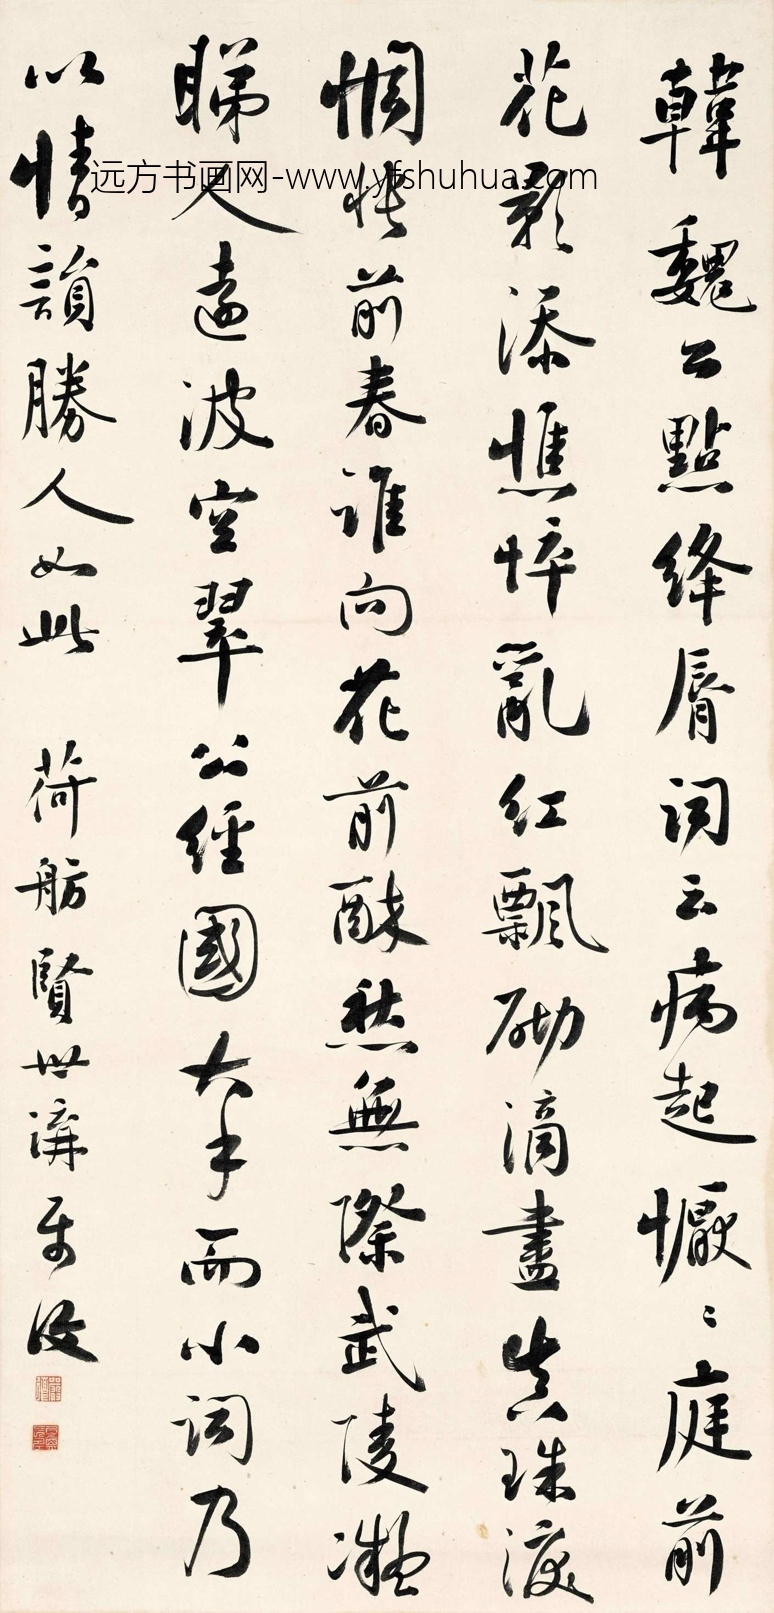 韓魏公點絳脣詞云病起懨〻庭前
花影添憔悴亂紅飄砌滴盡真珠淚
惆悵前春誰向花前醉愁無際武陵凝
睇人遠波空翠公經國大手而小词乃
以情韻勝人如此
荷舫賢世講
远方书画网-www.yfshuhua.com